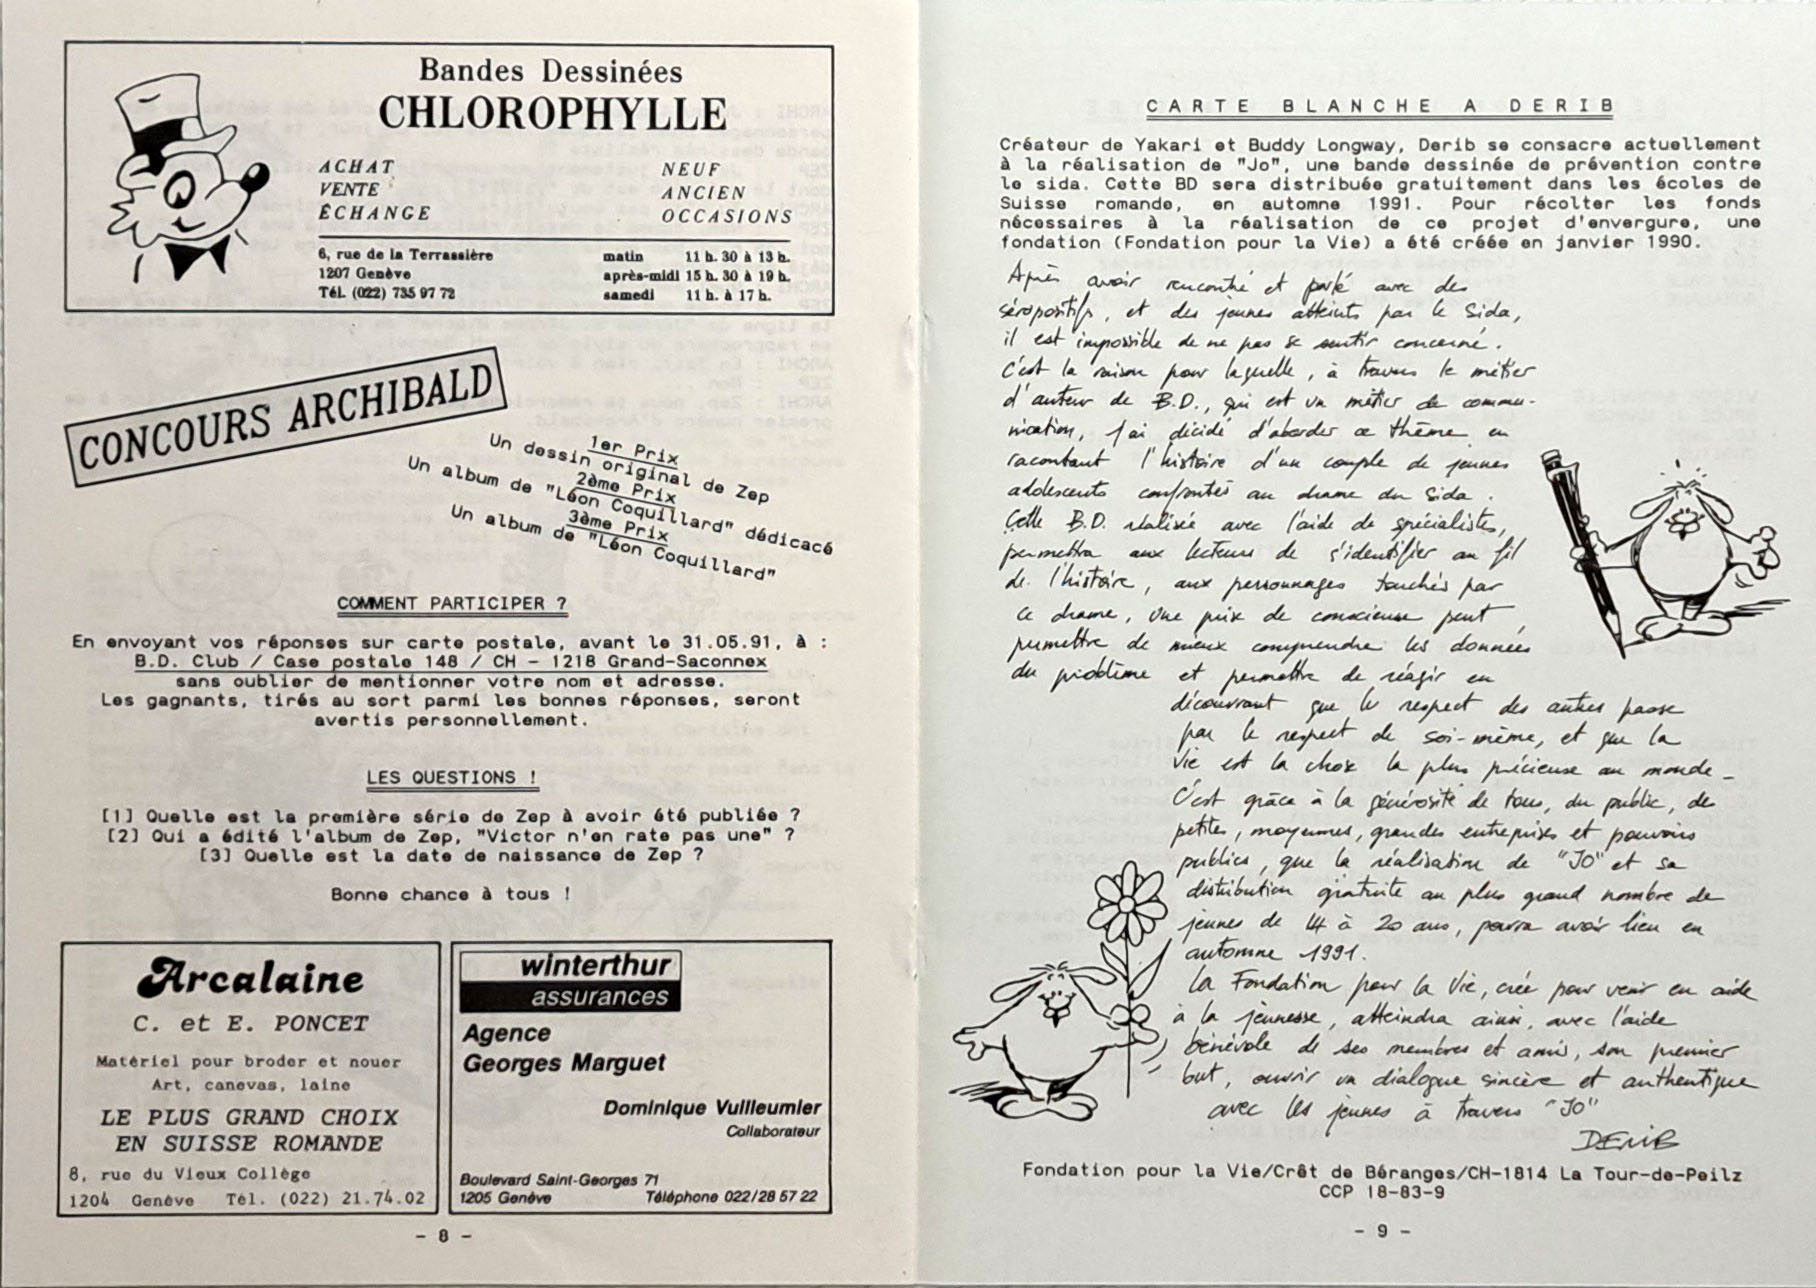 Bandes Dessinées
CHLOROPHYLLE
ACHAT NEUF
VENTE ANCIEN
ÉCHANGE OCCASIONS
6, rue de la Terrassière matin 11 h. 30 à 13 h.
1207 Genève après-midi 15 h. 30 à 19 h.
Tél. (022) 735 97 72 samedi 11 h. à 17 h.
CONCOURS ARCHIBALD
1er Prix
Un dessin original de Zep
2ème Prix
Un album de "Léon Coquillard" dédicacé
3ème Prix
Un album de "Léon Coquillard"
COMMENT PARTICIPER ?
En envoyant vos réponses sur carte postale, avant le 31.05.91, à :
B.D. Club / Case postale 148 / CH - 1218 Grand-Saconnex
sans oublier de mentionner votre nom et adresse.
Les gagnants, tirés au sort parmi les bonnes réponses, seront
avertis personnellement.
LES QUESTIONS !
[1] Quelle est la première série de Zep à avoir été publiée ?
[2] Qui a édité l'album de Zep, "Victor n'en rate pas une" ?
[3] Quelle est la date de naissance de Zep ?
Bonne chance à tous !
Arcalaine
C. et E. PONCET
Matériel pour broder et nouer
Art, canevas, laine
LE PLUS GRAND CHOIX
EN SUISSE ROMANDE
8, rue du Vieux Collège
1204 Genève Tél. (022) 21.74.02
winterthur
assurances
Agence
Georges Marguet
Dominique Vuilleumier
Collaborateur
Boulevard Saint-Georges 71
1205 Genève Téléphone 022/28 57 22
- 8 -
CARTE BLANCHE A DERIB
Créateur de Yakari et Buddy Longway, Derib se consacre actuellement
à la réalisation de "Jo", une bande dessinée de prévention contre
le sida. Cette BD sera distribuée gratuitement dans les écoles de
Suisse romande, en automne 1991. Pour récolter les fonds
nécessaires à la réalisation de ce projet d'envergure, une
fondation (Fondation pour la Vie) a été créée en janvier 1990.
Après avoir rencontré et parlé avec des
séropositifs, et des jeunes atteints par le Sida,
il est impossible de ne pas se sentir concerné.
C'est la raison pour laquelle, à travers le métier
d'auteur de B.D., qui est un métier de commu-
nication, j'ai décidé d'aborder ce thème en
racontant l'histoire d'un couple de jeunes
adolescents confrontés au drame du Sida.
Cette B.D. réalisée avec l'aide de spécialistes,
permettra aux lecteurs de s'identifier au fil
de l'histoire, aux personnages touchés par
ce drame, une prise de conscience peut
permettre de mieux comprendre les données
du problème et permettre de réagir en
découvrant que le respect des autres passe
par le respect de soi-même, et que la
Vie est la chose la plus précieuse au monde -
C'est grâce à la générosité de tous, du public, de
petites, moyennes, grandes entreprises et pouvoirs
publics, que la réalisation de "JO" et sa
distribution gratuite au plus grand nombre de
jeunes de 14 à 20 ans, pourra avoir lieu en
automne 1991.
La Fondation pour la Vie, créé pour venir en aide
à la jeunesse, atteindra ainsi, avec l'aide
bénévole de ses membres et amis, son premier
but, ouvrir un dialogue sincère et authentique
avec les jeunes à travers "JO"
DERIB
Fondation pour la Vie/Crêt de Béranges/CH-1814 La Tour-de-Peilz
CCP 18-83-9
- 9 -